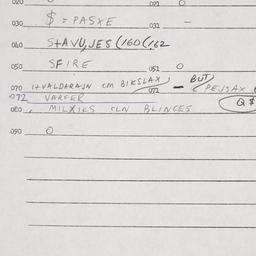 020 021 O
030 $ = PASXE 031 -
040 STAVU, JES (160 (162
050 SFIRE 051 O
070 I+VALDARAJN CM BIKSLAX) BUT
072 VARFER 071 - ( PEJSAX
080 MILXIES CLN BLINCES Q $
090 O